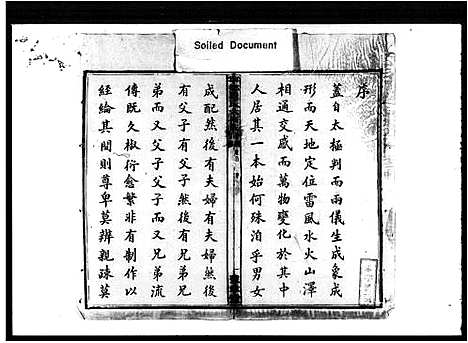 Soiled Document
序
蓋自太極判而兩儀生成象成
形而天地定位雷風水火山澤
相通交感而萬物變化於其中
人居其一本始何殊洎乎男女
成配然後有夫婦有夫婦然後
有父子有父子然後有兄弟兄
弟而又父子父子而又兄弟流
傳既久椒衍愈繁非有制作以
經綸其間則尊卑莫辨親疎莫